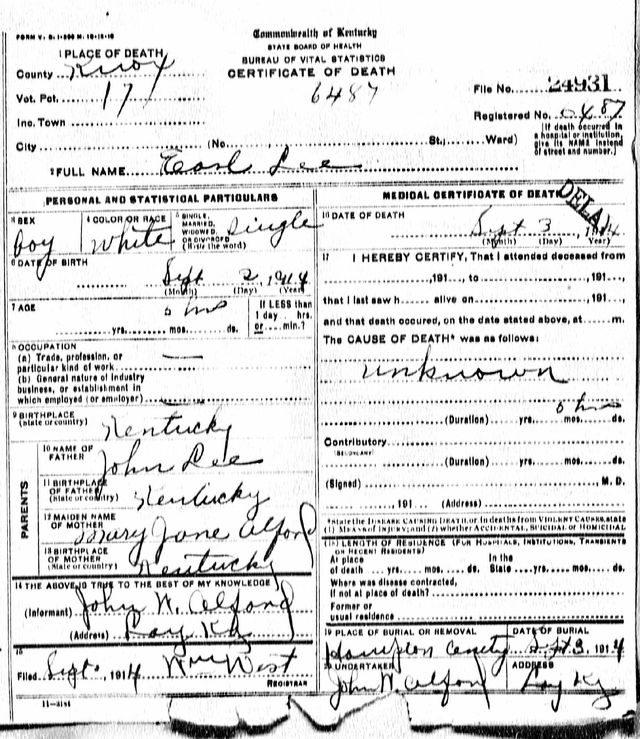 FORM V. S. 1-200 M. 10-15-10
Commonwealth of Kentucky
STATE BOARD OF HEALTH
BUREAU OF VITAL STATISTICS
CERTIFICATE OF DEATH
1 PLACE OF DEATH
County Knox
Vot. Pct. 17
6487
File No. 24931
Inc. Town
Registered No. 6487
City (No. St., Ward)
(If death occurred in a hospital or institution, give its NAME instead of street and number.)
2 FULL NAME Earl Lee
PERSONAL AND STATISTICAL PARTICULARS
3 SEX
boy
4 COLOR OR RACE
White
5 SINGLE, MARRIED, WIDOWED, OR DIVORCED (Write the word)
Single
6 DATE OF BIRTH
Sept 2, 1914
(Month) (Day) (Year)
7 AGE
6 hrs
yrs. mos. ds.
If LESS than 1 day hrs. or min.?
8 OCCUPATION
(a) Trade, profession, or particular kind of work
(b) General nature of industry business, or establishment in which employed (or employer)
9 BIRTHPLACE
(State or country)
Kentucky
PARENTS
10 NAME OF FATHER
John Lee
11 BIRTHPLACE OF FATHER
(State or country)
Kentucky
12 MAIDEN NAME OF MOTHER
Mary Jane Alford
13 BIRTHPLACE OF MOTHER
(State or country)
Kentucky
14 THE ABOVE IS TRUE TO THE BEST OF MY KNOWLEDGE
(Informant) John W. Alford
(Address) Ky
15
Filed Sept 1914 Wm West
REGISTRAR
11-3184
MEDICAL CERTIFICATE OF DEATH
DELAY
16 DATE OF DEATH
Sept 3, 1914
(Month) (Day) (Year)
17 I HEREBY CERTIFY, That I attended deceased from
, 191 , to , 191 ,
that I last saw h alive on , 191 ,
and that death occured, on the date stated above, at m.
The CAUSE OF DEATH* was as follows:
unknown
6 hrs
(Duration) yrs. mos. ds.
Contributory
(SECONDARY)
(Duration) yrs. mos. ds.
(Signed) M. D.
, 191 (Address)
*State the DISEASE CAUSING DEATH, or in deaths from VIOLENT CAUSES, state (1) MEANS OF INJURY; and (2) whether ACCIDENTAL, SUICIDAL OR HOMICIDAL
18 LENGTH OF RESIDENCE (FOR HOSPITALS, INSTITUTIONS, TRANSIENTS OR RECENT RESIDENTS)
At place of death yrs. mos. ds.
In the State yrs. mos. ds.
Where was disease contracted, if not at place of death?
Former or usual residence
19 PLACE OF BURIAL OR REMOVAL
Hampton
DATE OF BURIAL
Sept 3, 1914
20 UNDERTAKER
John W. Alford
ADDRESS
Ky